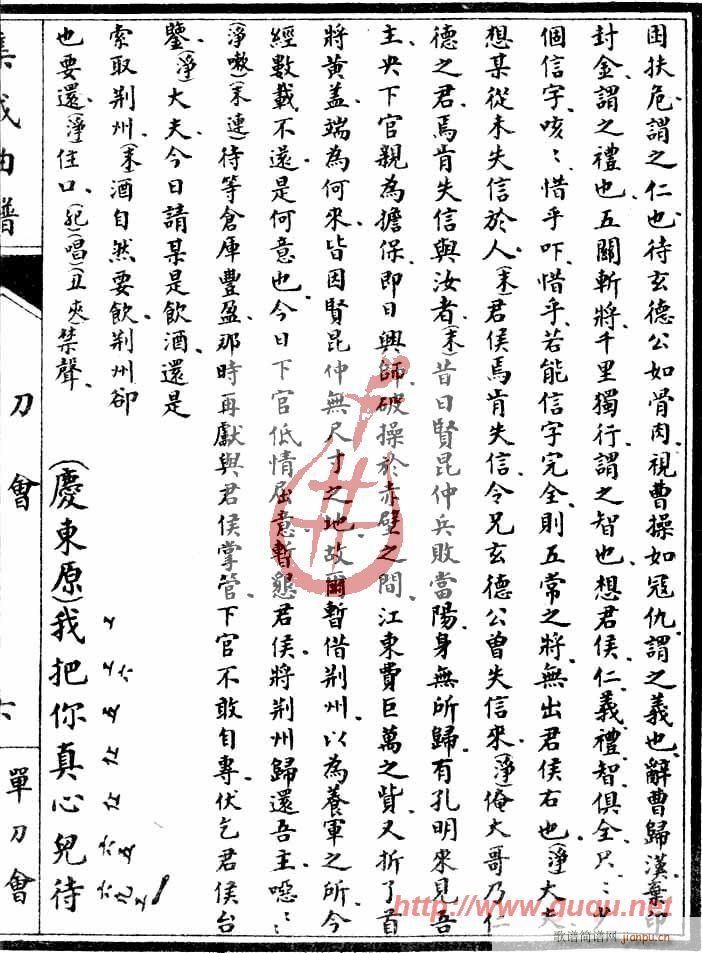 困扶危謂之仁也待玄德公如骨肉視曹操如寇仇謂之義也辭曹歸漢棄印
封金謂之禮也五關斬將千里獨行謂之智也想君侯仁義禮智俱全只：少
個信字咳：惜乎吓惜乎若能信字完全則五常之將無出君侯右也(淨)大夫
想某從未失信於人(末)君侯焉肯失信令兄玄德公曾失信來(淨)俺大哥乃仁
德之君焉肯失信與汝者(末)昔日賢昆仲兵敗當陽身無所歸有孔明來見吾
主央下官親為擔保即日興師破操於赤壁之間江東費巨萬之貲又折了首
將黃蓋端為何來皆因賢昆仲無尺寸之地故爾暫借荆州以為養軍之所今
經數載不還是何意也今日下官低情屈意暫懇君侯將荆州歸還吾主噁：：
(淨嗽)(末連)待等倉庫豐盈那時再獻與君侯掌管下官不敢自專伏乞君侯台
鑒(淨)大夫今日請某是飲酒還是
索取荆州(末)酒自然要飲荆州卻
也要還(淨)住口(起)(唱)(丑夾)禁聲
(慶東原)我把你真心兒待
集成曲譜
刀會
單刀會
http://www.guqu.net
歌谱简谱网
jianpu.cn